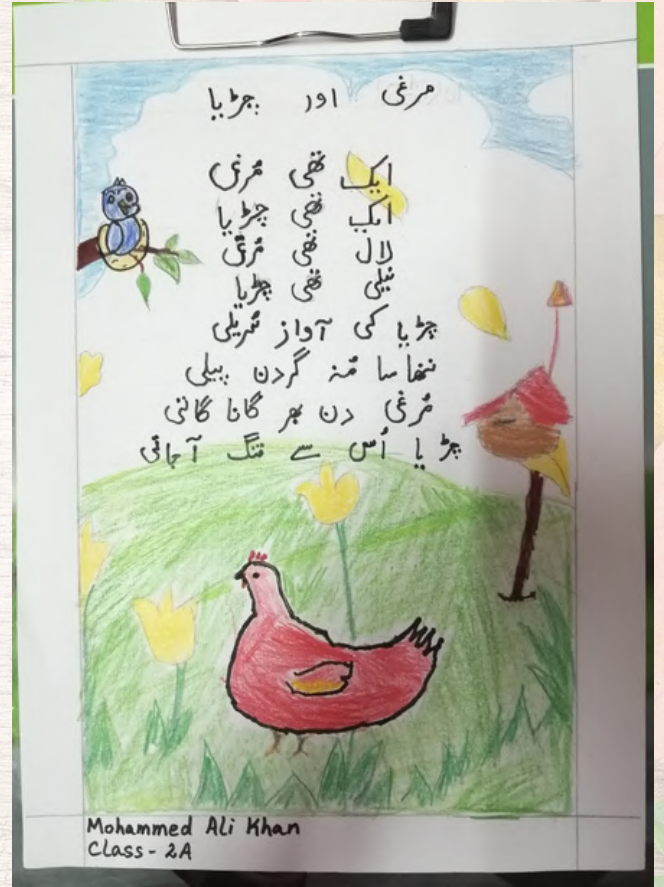 مرغی اور چڑیا
ایک تھی مُرغی
ایک تھی چڑیا
لال تھی مُرغی
نیلی تھی چڑیا
چڑیا کی آواز سُریلی
ننھا سا مُنہ گردن پیلی
مُرغی دن بھر گانا گاتی
چڑیا اُس سے تنگ آجاتی
Mohammed Ali Khan
Class - 2A